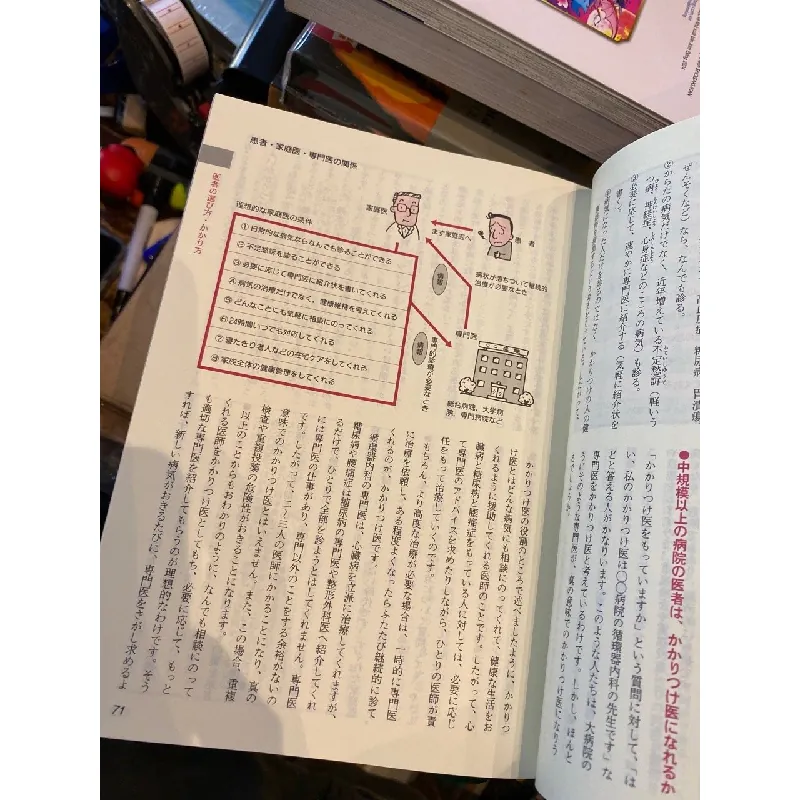 ぜんそくなど)なら、なんでも診る。
②からだの病気だけでなく、近年増えている不定愁訴(軽いう
つ病、神経症、心身症などのこころの病気)も診る。
③必要に応じて、速やかに専門医に紹介する(気軽に紹介状を
書く)。
●中規模以上の病院の医者は、かかりつけ医になれるか
「かかりつけ医をもっていますか」という質問に対して、「は
い、私のかかりつけ医は〇〇病院の循環器内科の先生です」な
どと答える人がかなりいます。このような人たちは、大病院の
専門医をかかりつけ医と考えているわけです。しかし、ほんと
うにそのような専門医が、真の意味でのかかりつけ医になりう
医者の選び方・かかり方
患者・家庭医・専門医の関係
家庭医
まず家庭医へ
患者
情報
病状が落ちついて継続的
治療が必要なとき
情報
専門的診療が必要なとき
専門医
総合病院、大学病
院、専門病院など
理想的な家庭医の条件
①日常的な病気ならなんでも診ることができる
②不定愁訴を診ることができる
③必要に応じて専門医に紹介状を書いてくれる
④病気の治療だけでなく、健康維持を考えてくれる
⑤どんなことにも気軽に相談にのってくれる
⑥24時間いつでも対応してくれる
⑦寝たきり老人などの在宅ケアをしてくれる
⑧家族全体の健康管理をしてくれる
かかりつけ医の役割のところで述べましたように、かかりつ
け医とはどんな病気にも相談にのってくれて、健康な生活をお
くれるように援助してくれる医師のことです。したがって、心
臓病と糖尿病と腰痛症をもっている人に対しては、必要に応じ
て専門医のアドバイスを求めたりしながら、ひとりの医師が責
任をもって治療していくのです。
もちろん、より高度な治療が必要な場合は、一時的に専門医
に治療を依頼し、ある程度よくなったらふたたび継続的に診て
くれるのが、かかりつけ医です。
循環器内科の専門医は、心臓病を立派に治療してくれますが、
糖尿病や腰痛症は糖尿病の専門医や整形外科医へ紹介してくれ
るだけで、ひとりで全部を診ようとはしてくれません。専門医
には専門医の仕事があり、専門以外のことをする余裕がないの
です。したがって、二〜三人の医師にかかることになり、真の
意味でのかかりつけ医とはいえません。また、この場合、重複
検査や重複投薬の危険性がおきることになります。
以上のことからもおわかりのように、なんでも相談にのって
くれる医師をかかりつけ医としてもち、必要に応じて、もっと
も適切な専門医を紹介してもらうのが理想的なわけです。そう
すれば、新しい病気がおきるたびに、専門医をさがし求めるよ
71